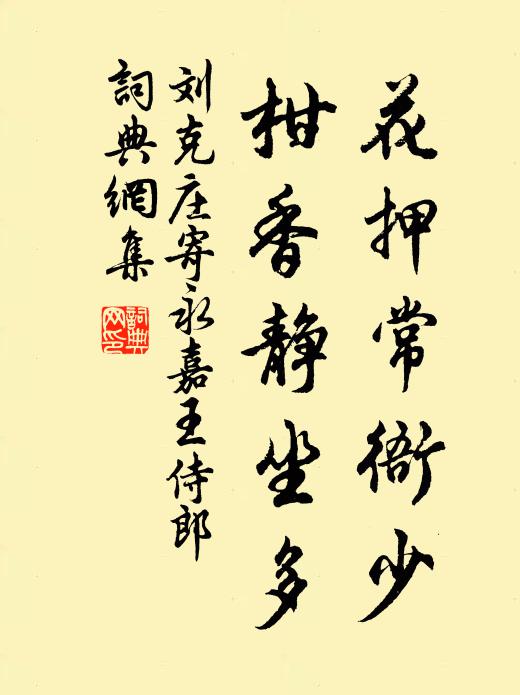 花押常衙少
柑香静坐多
刘克庄寄永嘉王侍郎
詞典網集
詞典网印